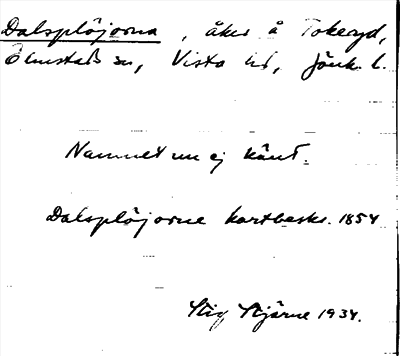 Dalsplöjorna, åker å Tokeryd,
Ölmstads sn, Vista hd, Jönk. l.
Namnet nu ej känt.
Dalsplöjorne kartbeskr. 1854
Stig Stjärne 1934.